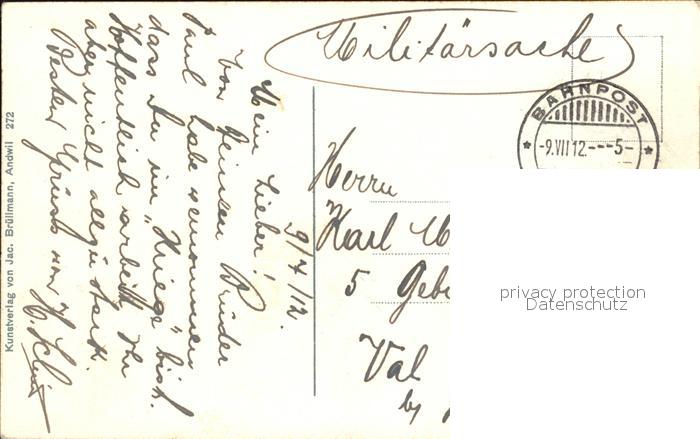 Militärsache
BAHNPOST
-9.VII 12.---5-
9/7/12.
Mein Lieber!
Von Deinem Bruder
Paul habe vernommen
dass Du im „Kriege" bist.
Hoffentlich arbeitet Ihr
aber nicht allzu stark.
Besten Gruss von H.
Herrn
Karl
5 Geb
Val
by
Kunstverlag von Jac. Brüllmann, Andwil 272
privacy protection
Datenschutz